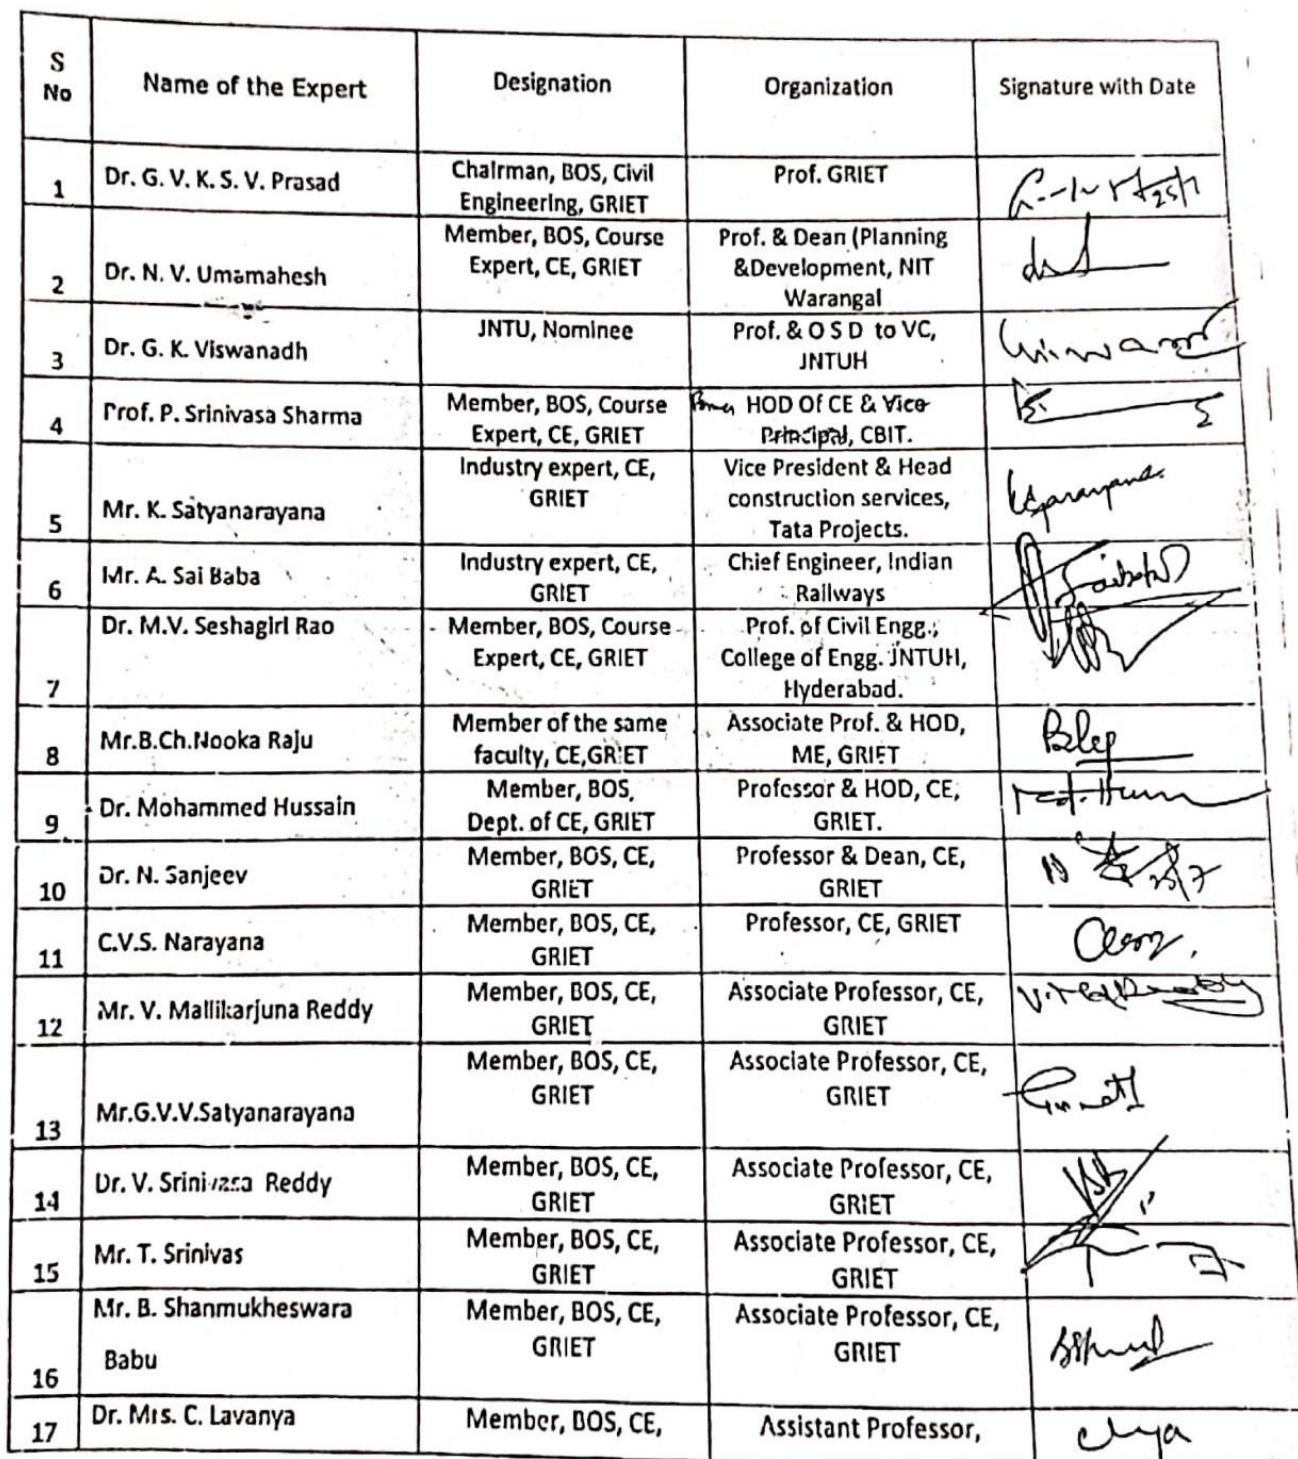 S No Name of the Expert Designation Organization Signature with Date
1 Dr. G. V. K. S. V. Prasad Chairman, BOS, Civil Engineering, GRIET Prof. GRIET 25/7
2 Dr. N. V. Umamahesh Member, BOS, Course Expert, CE, GRIET Prof. & Dean (Planning &Development, NIT Warangal
3 Dr. G. K. Viswanadh JNTU, Nominee Prof. & O S D to VC, JNTUH
4 Prof. P. Srinivasa Sharma Member, BOS, Course Expert, CE, GRIET HOD Of CE & Vice Principal, CBIT.
5 Mr. K. Satyanarayana Industry expert, CE, GRIET Vice President & Head construction services, Tata Projects.
6 Mr. A. Sai Baba Industry expert, CE, GRIET Chief Engineer, Indian Railways
7 Dr. M.V. Seshagiri Rao Member, BOS, Course Expert, CE, GRIET Prof. of Civil Engg., College of Engg. JNTUH, Hyderabad.
8 Mr.B.Ch.Nooka Raju Member of the same faculty, CE,GRIET Associate Prof. & HOD, ME, GRIET
9 Dr. Mohammed Hussain Member, BOS, Dept. of CE, GRIET Professor & HOD, CE, GRIET.
10 Dr. N. Sanjeev Member, BOS, CE, GRIET Professor & Dean, CE, GRIET 25/7
11 C.V.S. Narayana Member, BOS, CE, GRIET Professor, CE, GRIET
12 Mr. V. Mallikarjuna Reddy Member, BOS, CE, GRIET Associate Professor, CE, GRIET
13 Mr.G.V.V.Satyanarayana Member, BOS, CE, GRIET Associate Professor, CE, GRIET
14 Dr. V. Srinivasa Reddy Member, BOS, CE, GRIET Associate Professor, CE, GRIET
15 Mr. T. Srinivas Member, BOS, CE, GRIET Associate Professor, CE, GRIET
16 Mr. B. Shanmukheswara Babu Member, BOS, CE, GRIET Associate Professor, CE, GRIET
17 Dr. Mrs. C. Lavanya Member, BOS, CE, Assistant Professor,